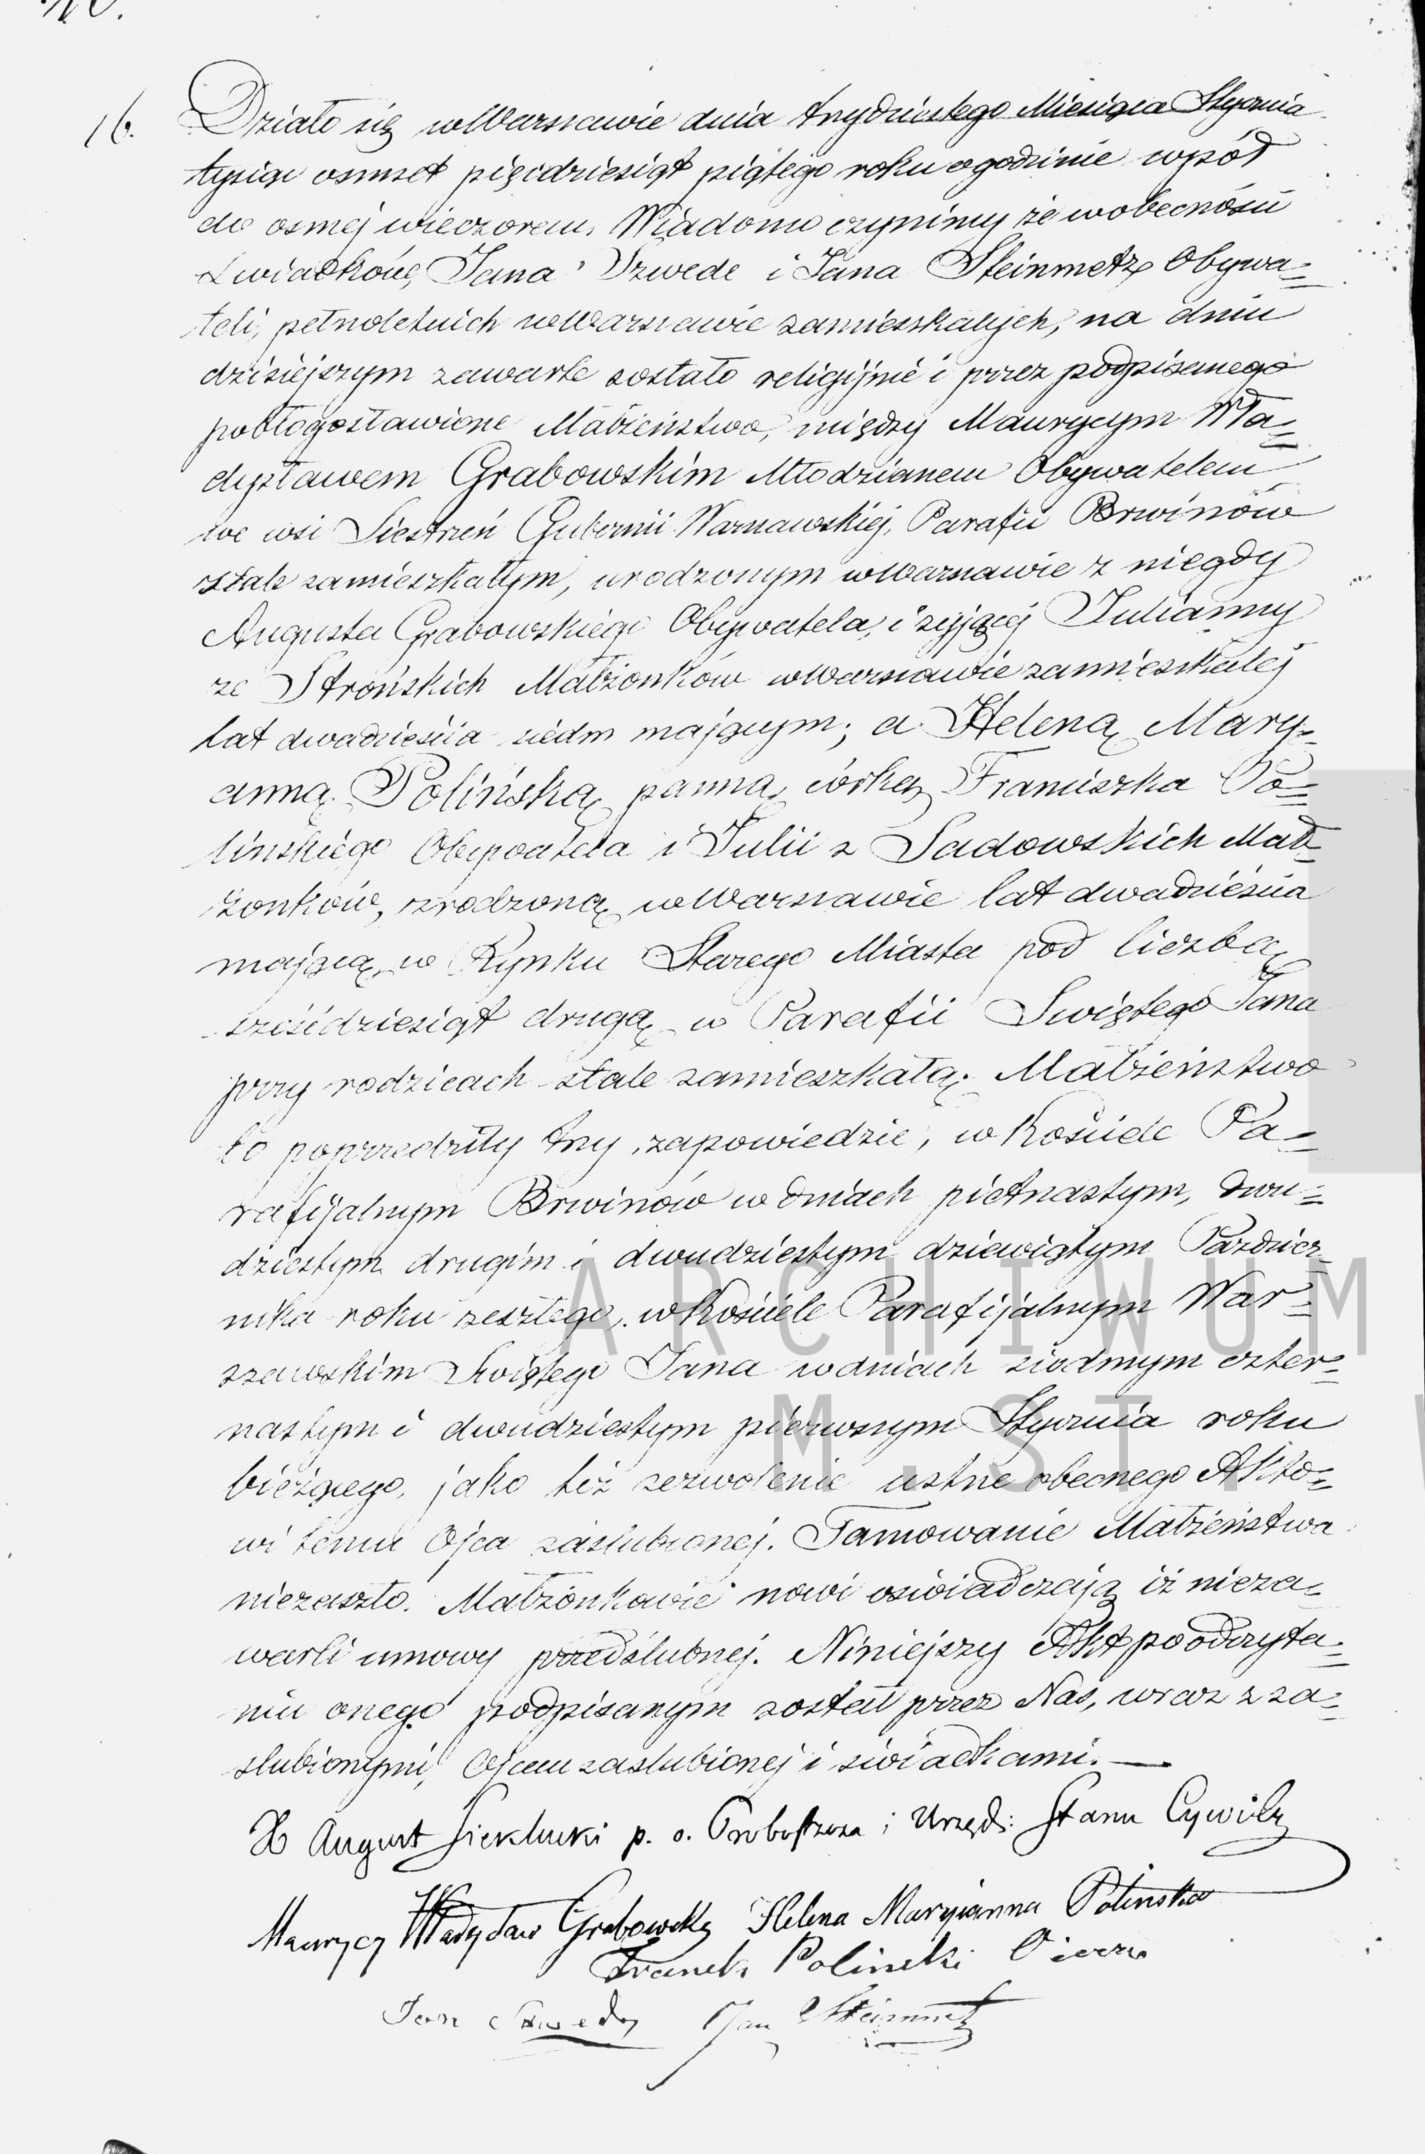 16. Działo się w Warszawie dnia trzydziestego Miesiąca Stycznia
tysiąc osmset pięćdziesiąt piątego roku o godzinie wpół
do osmej wieczorem. Wiadomo czynimy że w obecności
Swiadków, Jana Szwede i Jana Steinmetz Obywa=
teli, pełnoletnich w Warszawie zamieszkałych, na dniu
dzisiejszym zawarte zostało religijnie i przez podpisanego
pobłogosławione Małżeństwo, między Maurycym Wła=
dysławem Grabowskim Młodzianem Obywatelem
we wsi Siestrzeń Gubernii Warszawskiej, Parafii Brwinów
stale zamieszkałym, urodzonym w Warszawie z niegdy
Augusta Grabowskiego Obywatela, i żyjącej Julianny
ze Strońskich Małżonków w Warszawie zamieszkałej
lat dwadzieścia siedm mającym; a Heleną Mary=
anną Polińską panną, córką Franciszka Po=
lińskiego Obywatela i Julii z Sadowskich Mał=
żonków, zrodzoną w Warszawie lat dwadzieścia
mającą, w Rynku Starego Miasta pod liczbą
sześćdziesiąt drugą w Parafii Swiętego Jana
przy rodzicach stale zamieszkałą. Małżeństwo
to poprzedziły trzy zapowiedzie, w Kościele Pa=
rafijalnym Brwinów w dniach piętnastym, dwu=
dziestym drugim i dwudziestym dziewiątym Paździer=
nika roku zeszłego, w Kościele Parafijalnym War=
szawskim Swiętego Jana w dniach siódmym czter=
nastym i dwudziestym pierwszym Stycznia roku
bieżącego, jako też zezwolenie ustne obecnego Akto=
wi temu Ojca zaślubionej. Tamowanie Małżeństwa
niezaszło. Małżonkowie nowi oświadczają iż nieza=
warli umowy przedślubnej. Niniejszy Akt po odczyta=
niu onego podpisanym został przez Nas, wraz z za=
ślubionymi, Ojcem zaślubionej i świadkami.—
X August Sieklucki p. o. Proboszcza i Urzęd: Stanu Cywiln
Maurycy Władysław Grabowski Helena Maryianna Polińska
Franck Polinski Oiciec
Jan Szwede Jan Steinmetz
ARCHIWUM
M.ST.W